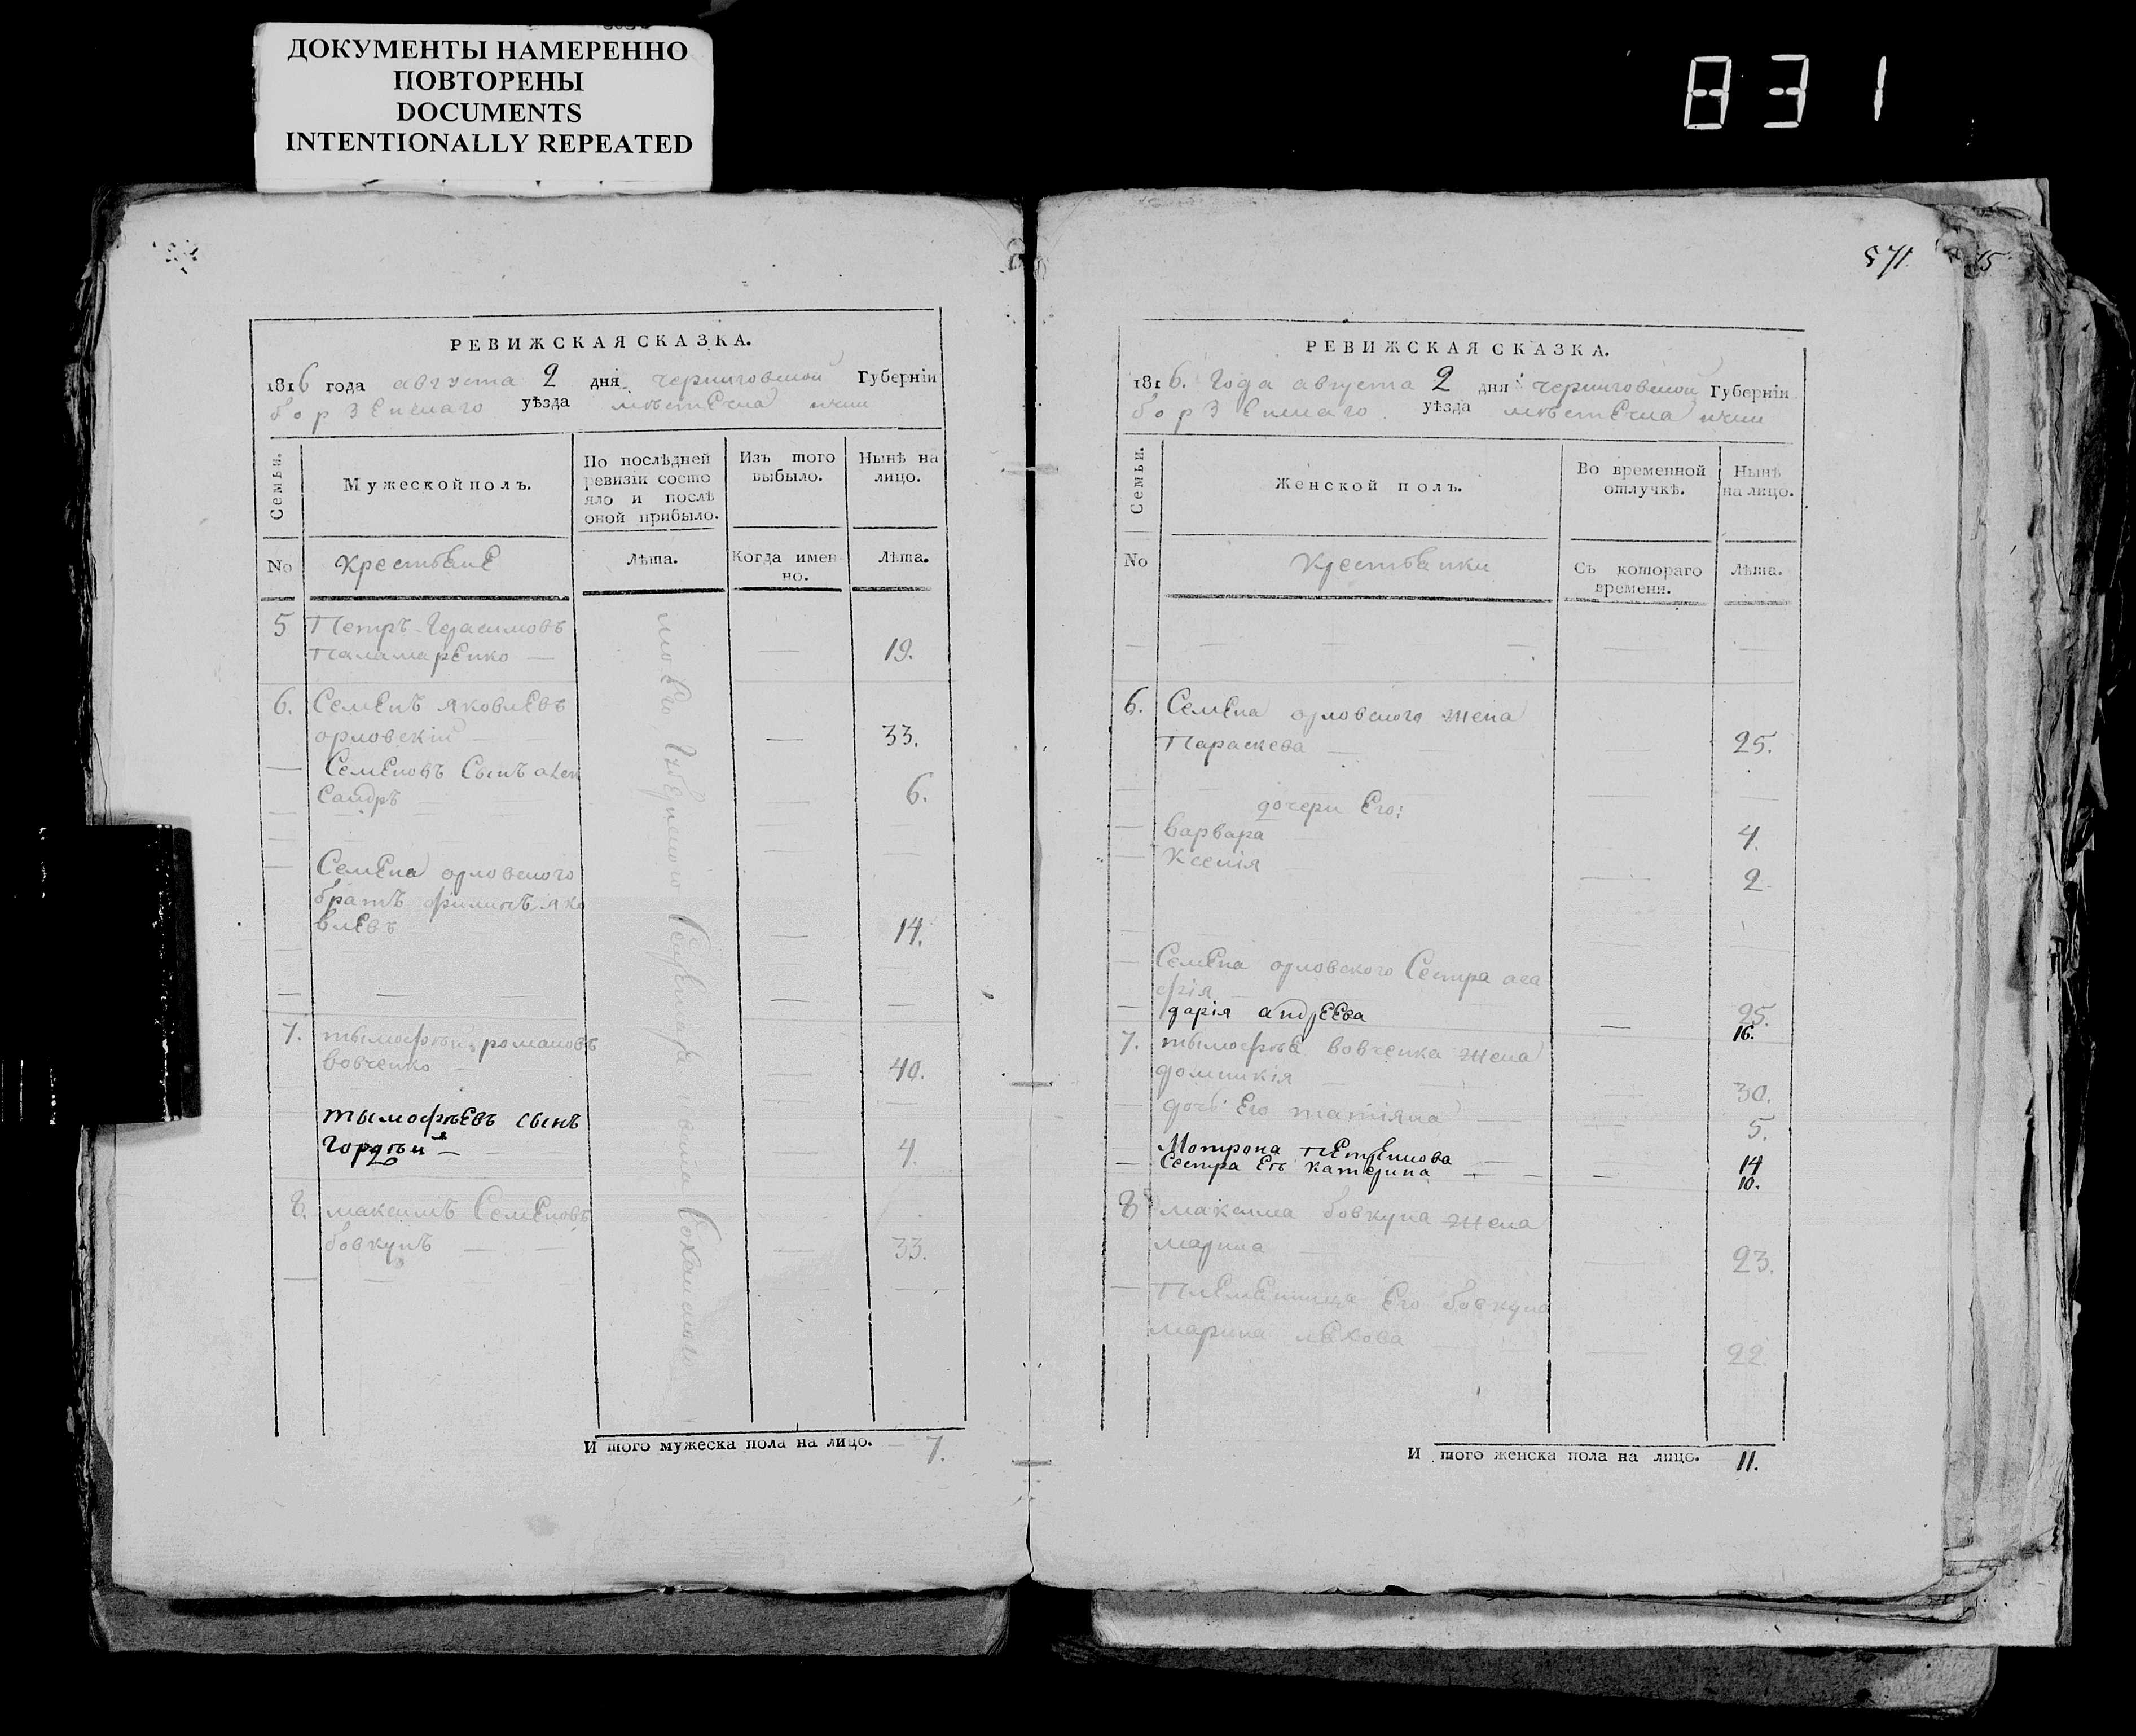 ДОКУМЕНТЫ НАМЕРЕННО
ПОВТОРЕНЫ
DOCUMENTS
INTENTIONALLY REPEATED
831
РЕВИЖСКАЯ СКАЗКА.
1816 года августа 2 дня черниговской Губернїи
борзенскаго уѣзда мѣстечка ични
Семьи.
Мужеской полъ.
По послѣдней
ревизїи состо
яло и послѣ
оной прибыло.
Изъ того
выбыло.
Нынѣ на
лицо.
No
Крестьяне
Лѣта.
Когда имен
но.
Лѣта.
5 Петръ Герасимовъ
Паламаренко — 19.
6. Семенъ яковлевъ
орловскїй — 33.
Семеновъ Сынъ алек
сандръ 6.
Семена орловского
братъ филипъ яко
влевъ 14.
7. тымофѣй романовъ
вовченко 40.
тымофѣевъ сынъ
Гордѣй — 4.
8. максимъ Семеновъ
бовкунъ 33.
И того мужеска пола на лицо. 7.
571.
15
РЕВИЖСКАЯ СКАЗКА.
1816. Года августа 2 дня черниговской Губернїи
борзенскаго уѣзда мѣстечка ични
Семьи.
Женской полъ.
Во временной
отлучкѣ.
Нынѣ
на лицо.
No
Крестьянки
Съ котораго
времени.
Лѣта.
6. Семена орловского жена
Параскева 25.
дочери Его:
варвара 4.
Ксенїя 2.
Семена орловского Сестра ага
фїя 25.
дарїя андреева 16.
7. тымофѣя вовченка жена
домникїя 30.
дочь Его татїяна 5.
Мотрона петренкова 14
Сестра Ея катерина 10.
8 максима бовкуна жена
марина 23.
Племенница Его бовкуна
марина 22.
И того женска пола на лицо. 11.